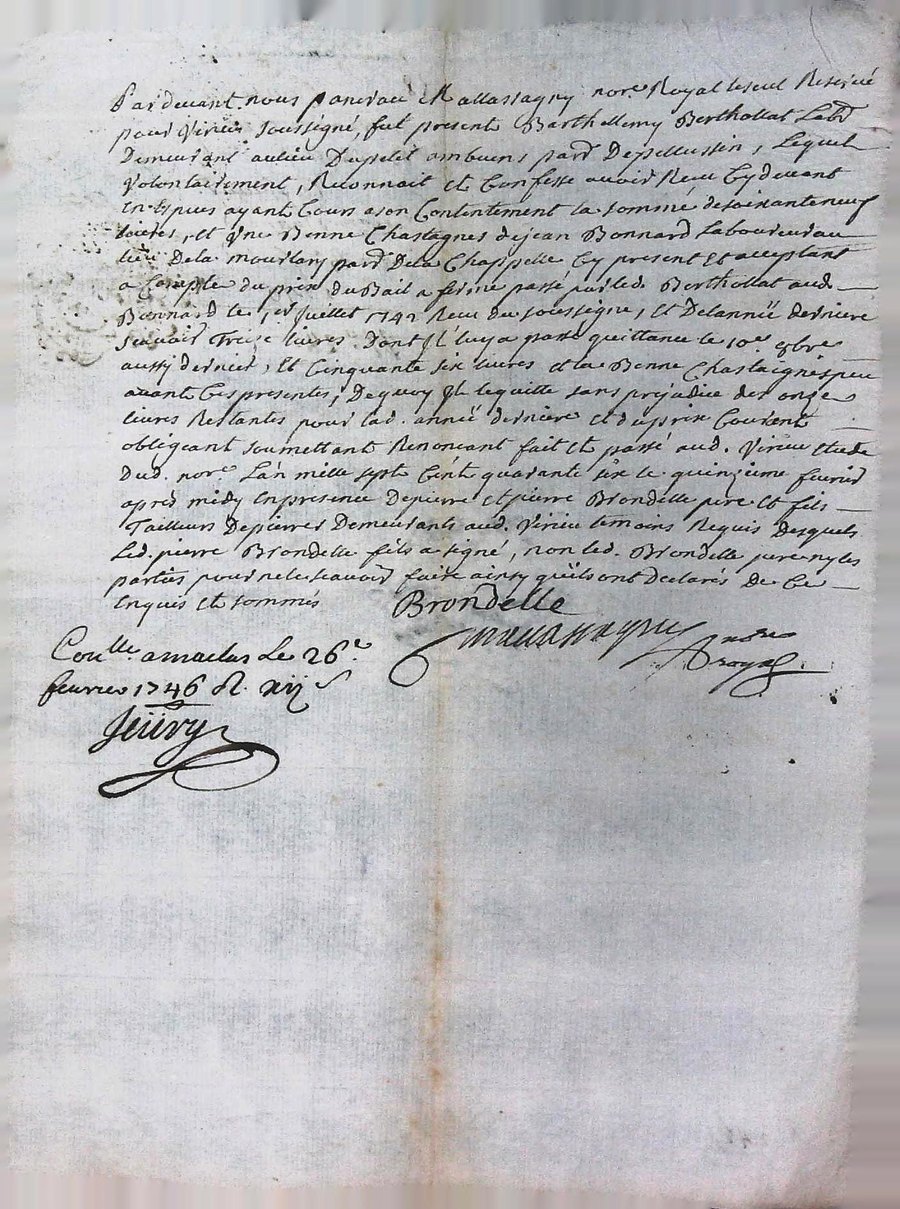 Pardevant nous pancrau Mallassagny nore. Royal leseul Reservé
pour Virieu soussigné, fut present Barthellemy Berthollat Labr
Demeurant aulieu Dupetit ambuens parr. Depellussin, Lequel
Volontairement, Reconnait et Confesse avoir Receu Cydevant
En Espuces ayant Cours ason Contentement la somme desoixanteneuf
Livres, et Vne Benne Chastagnes dejean Bonnard Laboureurau
lieu Dela mourlary parr. Dela Chappelle Cy present et acceptant
a Compte du prix du Bail a ferme passé parled. Berthollat aud.
Bonnard le, er Juillet 1742 Receu du soussigné, et Delannée derniere
scavoir Treize livres Dont Jl luy a passé quittance le 10e. xbre
aussy dernier, Et Cinquante six livres et la Benne Chastaignespeu
avant Ces presentes, Dequoy Jl lequitte sans prejudice des onze
livres Restantes pour lad. année derniere et duprix Courant
obligeant soumettant Renoncant fait et passé aud. Virieu etude
Dud. nore. L'an mille sept Cent quarante six le quinzieme fevrier
apres midy Enpresence Depierre et pierre Brondelle pere et fils
Tailleurs Depierres Demeurants aud. Virieu temoins Requis Desquels
Led. pierre Brondelle fils a signé, non led. Brondelle pere nyles
parties pournelesçavoir faire ainsy quilsont declarés De Ce
Enquis et sommés
Brondelle
Mallassagny
nore royal
Conlle. amaclas Le 26e.
fevrier 1746 R. xij s
Jeury